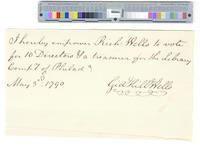 I hereby empower Rich Wells to vote
for 10 Directors & a treasurer for the Library
Comp.y of Philad.a
May 5th 1790 Gid Hill Wells